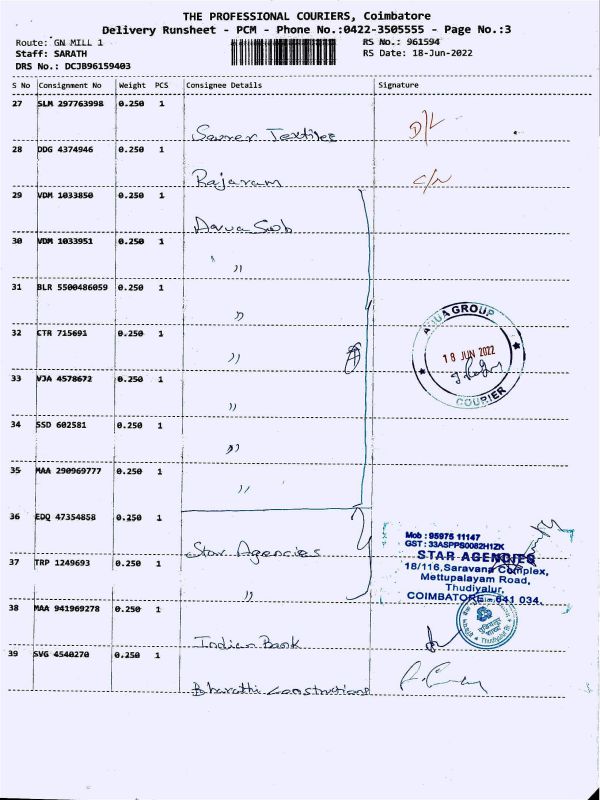 THE PROFESSIONAL COURIERS, Coimbatore
Delivery Runsheet - PCM - Phone No.:0422-3505555 - Page No.:3
Route: GN MILL 1
RS No.: 961594
Staff: SARATH
RS Date: 18-Jun-2022
DRS No.: DCJB96159403
S No Consignment No Weight PCS Consignee Details Signature
27 SLM 297763998 0.250 1
Textiles D/L
28 DDG 4374946 0.250 1
Rajaram
29 VDM 1033850 0.250 1
30 VDM 1033951 0.250 1
"
31 BLR 5500486059 0.250 1
"
32 CTR 715691 0.250 1
"
33 VJA 4578672 0.250 1
"
34 SSD 602581 0.250 1
"
35 MAA 290969777 0.250 1
"
AQUA GROUP
18 JUN 2022
COURIER
36 EDQ 47354858 0.250 1
Star Agencies
37 TRP 1249693 0.250 1
"
Mob : 95975 11147
GST : 33ASPPS0082H1ZK
STAR AGENCIES
18/116, Saravana Complex,
Mettupalayam Road,
Thudiyalur,
COIMBATORE - 641 034.
38 MAA 941969278 0.250 1
Indian Bank
39 SVG 4540270 0.250 1
Bharathi Constructions